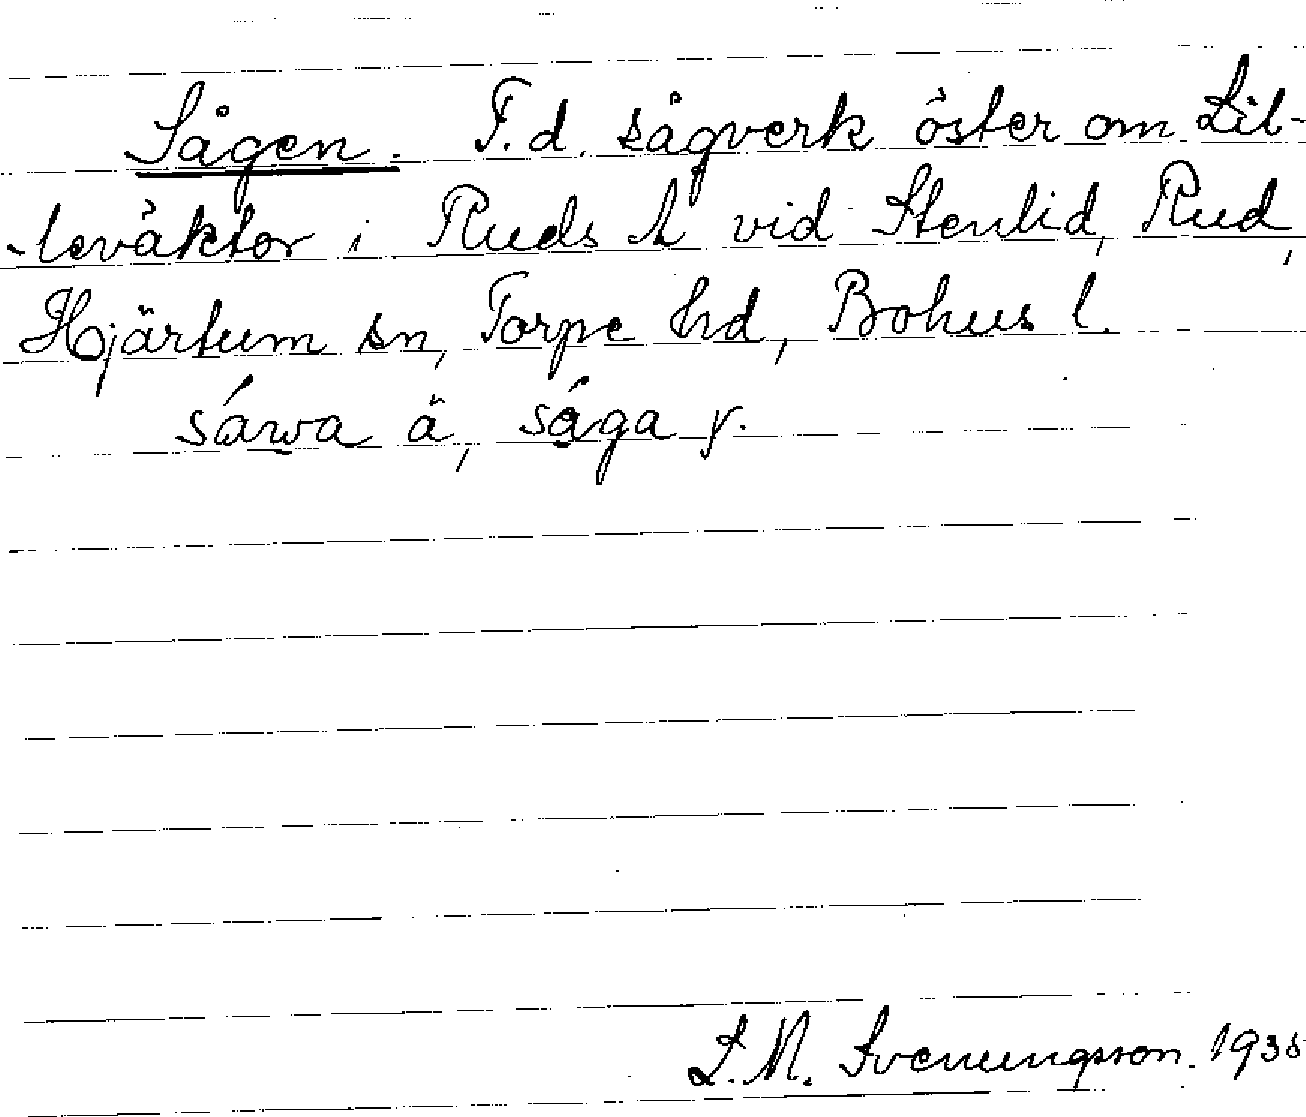 Sågen. F.d. sågverk öster om Lil-
-leväktor i Ruds h vid Stenlid, Rud,
Hjärtum sn, Torpe hd, Bohus l.
såwa ä, såga y.
S. M. Svenungsson. 1935